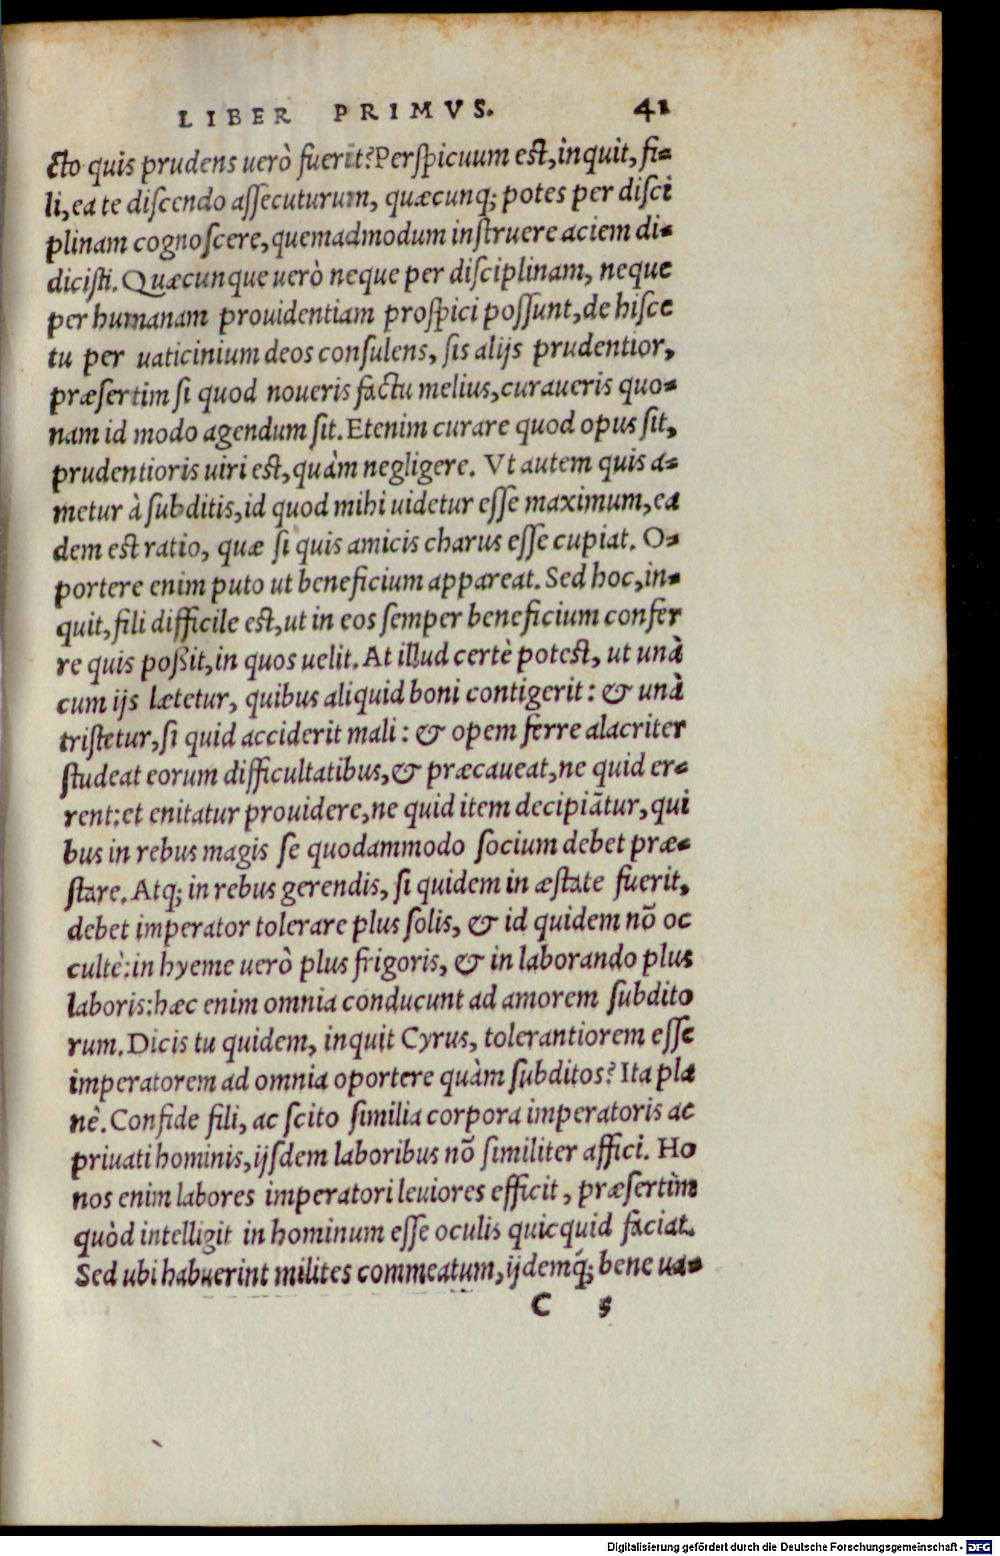 LIBER PRIMVS. 41
cto quis prudens uerò fuerit? Perspicuum est, inquit, fi-
li, ea te discendo assecuturum, quæcunq; potes per disci
plinam cognoscere, quemadmodum instruere aciem di-
dicisti. Quæcunque uerò neque per disciplinam, neque
per humanam prouidentiam prospici possunt, de hisce
tu per uaticinium deos consulens, sis alijs prudentior,
præsertim si quod noueris factu melius, curaueris quo-
nam id modo agendum sit. Etenim curare quod opus sit,
prudentioris uiri est, quàm negligere. Vt autem quis a-
metur à subditis, id quod mihi uidetur esse maximum, ea
dem est ratio, quæ si quis amicis charus esse cupiat. O-
portere enim puto ut beneficium appareat. Sed hoc, in-
quit, fili difficile est, ut in eos semper beneficium confer
re quis poßit, in quos uelit. At illud certè potest, ut unà
cum ijs lætetur, quibus aliquid boni contigerit: & unà
tristetur, si quid acciderit mali: & opem ferre alacriter
studeat eorum difficultatibus, & præcaueat, ne quid er-
rent: et enitatur prouidere, ne quid item decipiātur, qui
bus in rebus magis se quodammodo socium debet præ-
stare. Atq; in rebus gerendis, si quidem in æstate fuerit,
debet imperator tolerare plus solis, & id quidem nō oc
cultè: in hyeme uerò plus frigoris, & in laborando plus
laboris: hæc enim omnia conducunt ad amorem subdito
rum. Dicis tu quidem, inquit Cyrus, tolerantiorem esse
imperatorem ad omnia oportere quàm subditos? Ita pla
nè. Confide fili, ac scito similia corpora imperatoris ac
priuati hominis, ijsdem laboribus nō similiter affici. Ho
nos enim labores imperatori leuiores efficit, præsertìm
quòd intelligit in hominum esse oculis quicquid faciat.
Sed ubi habuerint milites commeatum, ijdemq́; bene ua-
C 5
Digitalisierung gefördert durch die Deutsche Forschungsgemeinschaft - DFG